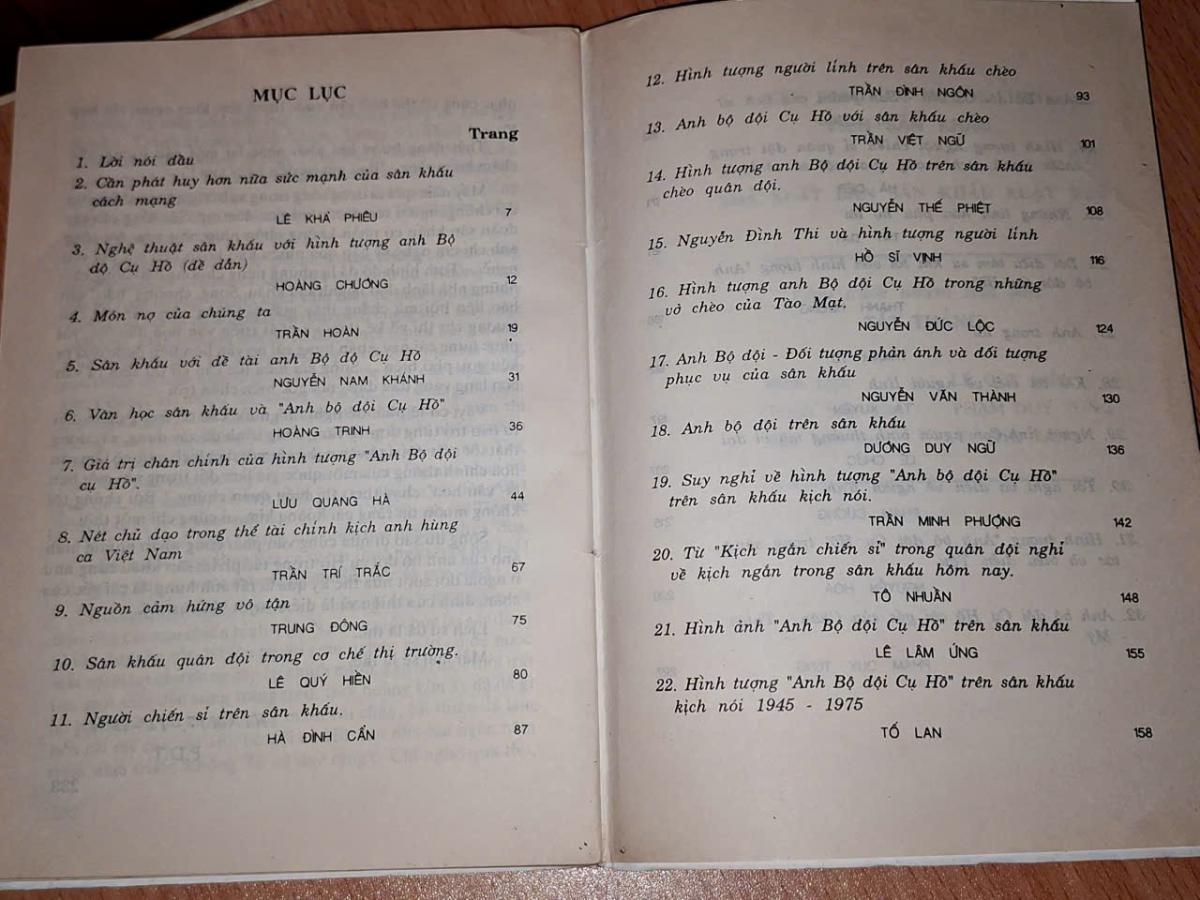 MỤC LỤC
Trang
1. Lời nói đầu
2. Cần phát huy hơn nữa sức mạnh của sân khấu
cách mạng
LÊ KHẢ PHIÊU 7
3. Nghệ thuật sân khấu với hình tượng anh Bộ
độ Cụ Hồ (đề dẫn)
HOÀNG CHƯƠNG 12
4. Món nợ của chúng ta
TRẦN HOÀN 19
5. Sân khấu với đề tài anh Bộ độ Cụ Hồ
NGUYỄN NAM KHÁNH 31
6. Văn học sân khấu và "Anh bộ đội Cụ Hồ"
HOÀNG TRINH 36
7. Giá trị chân chính của hình tượng "Anh Bộ đội
cụ Hồ".
LƯU QUANG HÀ 44
8. Nét chủ đạo trong thể tài chính kịch anh hùng
ca Việt Nam
TRẦN TRÍ TRẮC 67
9. Nguồn cảm hứng vô tận
TRUNG ĐÔNG 75
10. Sân khấu quân đội trong cơ chế thị trường.
LÊ QUÝ HIỀN 80
11. Người chiến sĩ trên sân khấu.
HÀ ĐÌNH CẨN 87
12. Hình tượng người lính trên sân khấu chèo
TRẦN ĐÌNH NGÔN 93
13. Anh bộ đội Cụ Hồ với sân khấu chèo
TRẦN VIỆT NGỮ 101
14. Hình tượng anh Bộ đội Cụ Hồ trên sân khấu
chèo quân đội.
NGUYỄN THẾ PHIỆT 108
15. Nguyễn Đình Thi và hình tượng người lính
HỒ SĨ VỊNH 116
16. Hình tượng anh Bộ đội Cụ Hồ trong những
vở chèo của Tào Mạt.
NGUYỄN ĐỨC LỘC 124
17. Anh Bộ đội - Đối tượng phản ánh và đối tượng
phục vụ của sân khấu
NGUYỄN VĂN THÀNH 130
18. Anh bộ đội trên sân khấu
DƯƠNG DUY NGỮ 136
19. Suy nghĩ về hình tượng "Anh bộ đội Cụ Hồ"
trên sân khấu kịch nói.
TRẦN MINH PHƯỢNG 142
20. Từ "Kịch ngắn chiến sĩ" trong quân đội nghĩ
về kịch ngắn trong sân khấu hôm nay.
TÔ NHUẦN 148
21. Hình ảnh "Anh Bộ đội Cụ Hồ" trên sân khấu
LÊ LÂM ỨNG 155
22. Hình tượng "Anh Bộ đội Cụ Hồ" trên sân khấu
kịch nói 1945 - 1975
TỐ LAN 158